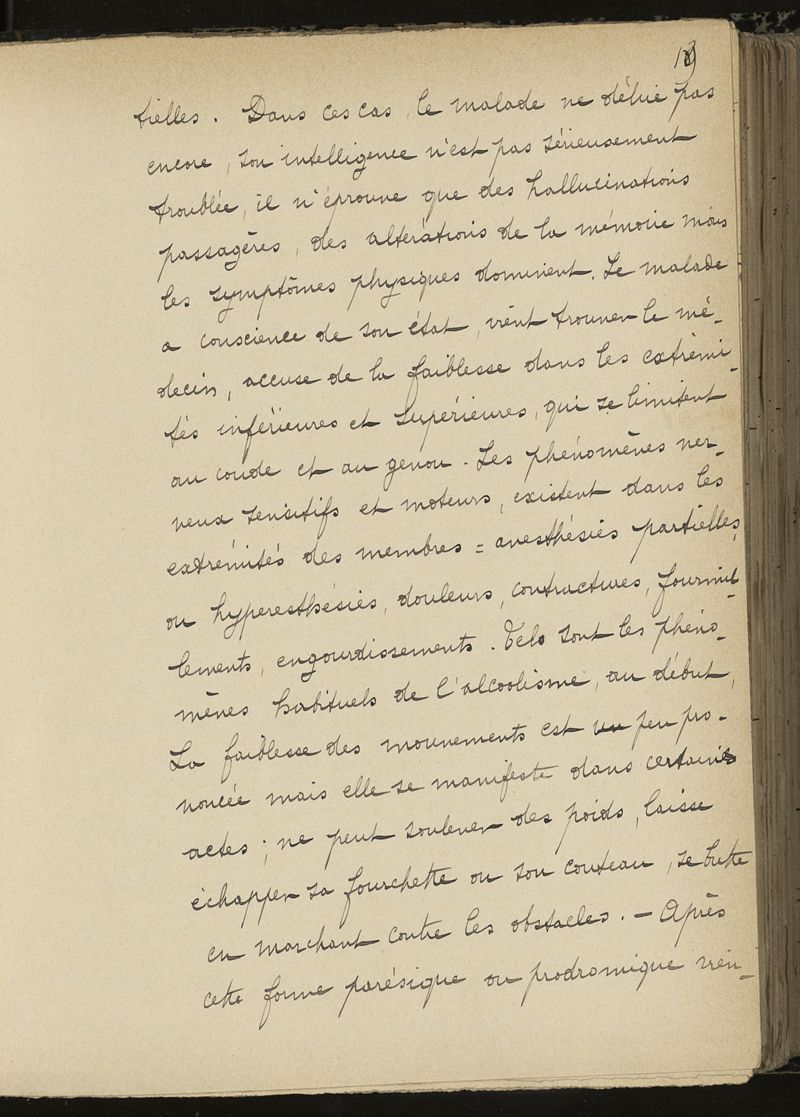 tielles. Dans ces cas, le malade ne délire pas
encore, son intelligence n'est pas sérieusement
troublée, il n'éprouve que des hallucinations
passagères, des altérations de la mémoire mais
les symptômes physiques dominent. Le malade
a conscience de son état, vient trouver le mé-
decin, accuse de la faiblesse dans les extrémi-
tés inférieures et supérieures, qui se limitent
au coude et au genou. Les phénomènes ner-
veux sensitifs et moteurs, existent dans les
extrémités des membres = anesthésies partielles,
ou hyperesthésies, douleurs, contractures, fourmil-
lements, engourdissements. Tels sont les phéno-
mènes habituels de l'alcoolisme, au début,
La faiblesse des mouvements est un peu pro-
noncée mais elle se manifeste dans certains
actes ; ne peut soulever des poids, laisse
échapper sa fourchette ou son couteau, se butte
en marchant contre les obstacles. — Après
cette forme parésique ou prodromique vien-